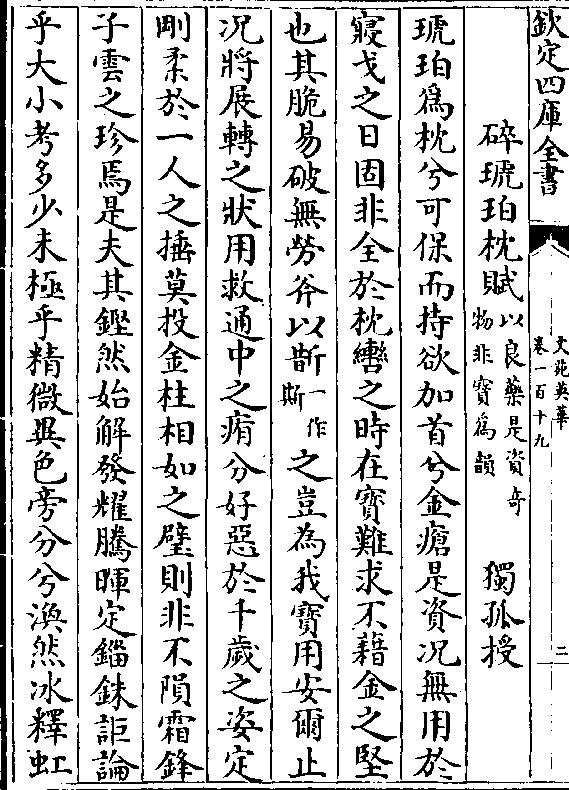 欽定四庫全書
文苑英華
卷一百十九
二
碎琥珀枕賦以良藥是資奇物非寶為韻 獨孤授
琥珀為枕兮可保而持欲加首兮金瘡是資况無用於
寢戈之日固非全於枕轡之時在寳難求不藉金之堅
也其脆易破無勞斧以斮一作斯之豈為我寳用安爾止
况將展轉之狀用救通中之痏分好惡於千歲之姿定
剛柔於一人之捶莫投金柱相如之璧則非不隕霜鋒
子雲之珍焉是夫其鏗然始解發耀騰暉定錙銖詎論
乎大小考多少未極乎精微異色旁分兮渙然冰釋虹